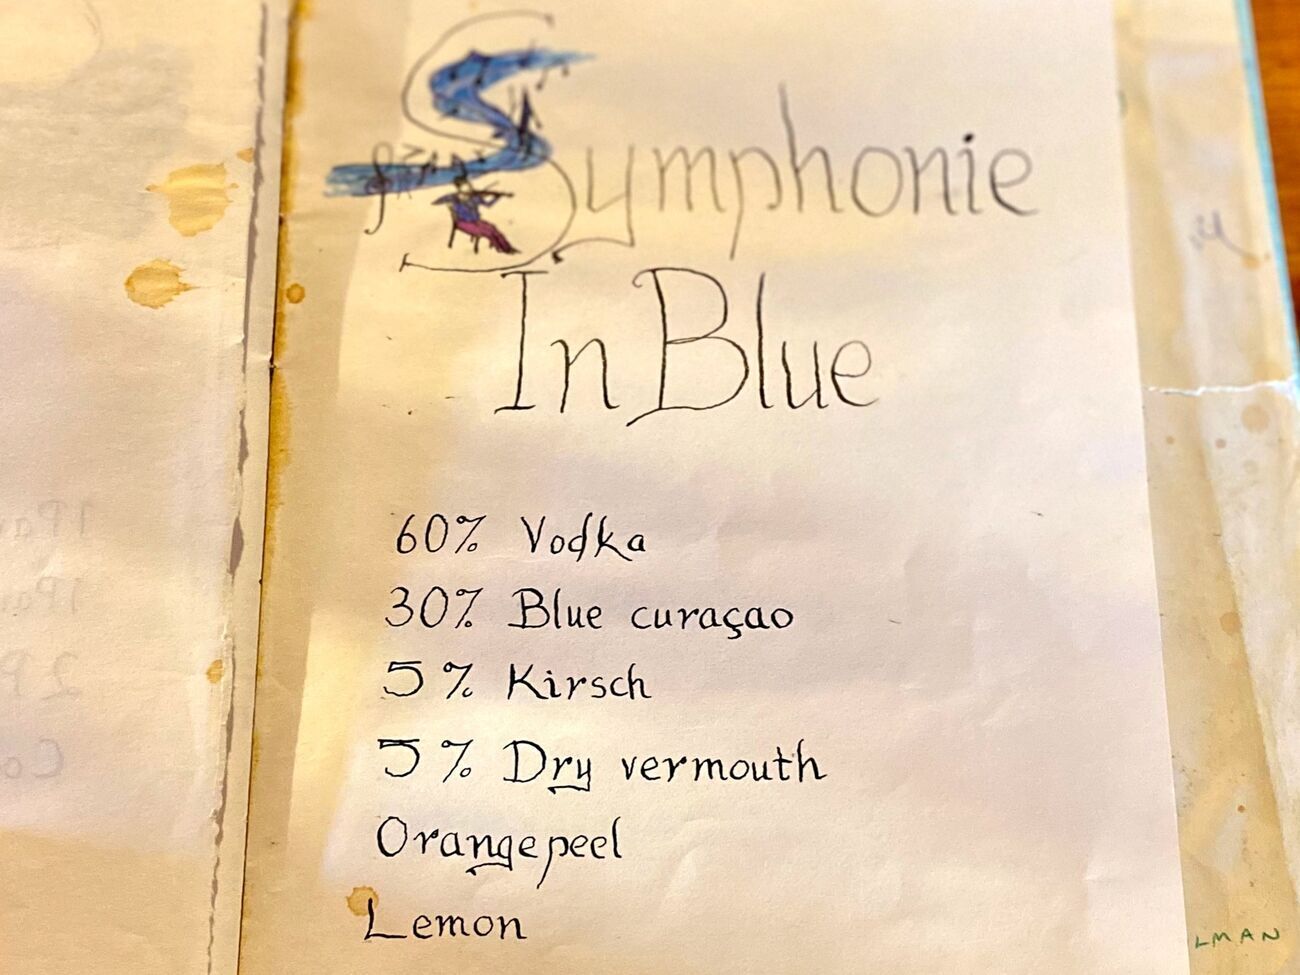 Symphonie
In Blue
60% Vodka
30% Blue curaçao
5% Kirsch
5% Dry vermouth
Orangepeel
Lemon
LMAN